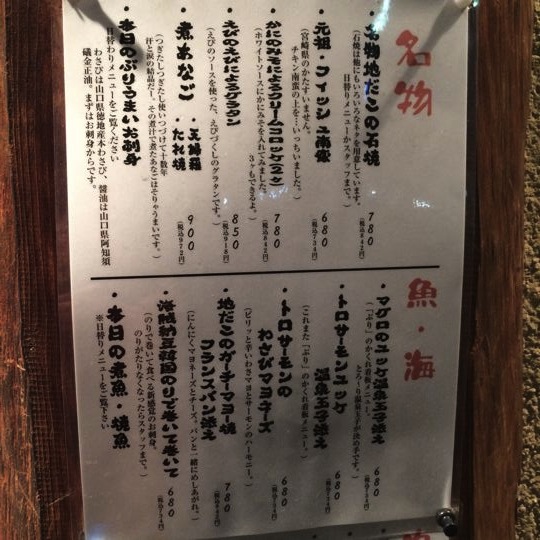 名物
・名物地だこの石焼 780
(税込842円)
(石焼は他にもいろいろなネタを用意しています。
日替りメニューかスタッフまで。)
・元祖・フィッシュ南蛮 680
(税込734円)
(宮崎県のかたすいません。
チキン南蛮の上を…いっちいました。)
・かにのみそによるクリームコロッケ(2ヶ) 780
(税込842円)
(ホワイトソースにかにみそを入れてみました。
3ヶもできるよ。)
・えびのえびによるグラタン 850
(税込918円)
(えびのソースを使った、えびづくしのグラタンです。)
・煮あなご・天婦羅
・たれ焼 900
(税込972円)
(つぎたしつぎたし使いつづけて十数年
汗と涙の結晶だー。その煮汁で煮たあなごはそりゃうまいです。)
・本日のぶりうまいお刺身
日替わりメニューをご覧ください
わさびは山口県徳地産本わさび、醤油は山口県阿知須
礒金正油。まずはお刺身からです。
魚・海
・マグロのユッケ温泉玉子添え 680
(税込734円)
(「ぶり」のかくれ看板メニュー。
とろーり温泉玉子が決め手です。)
・トロサーモンユッケ
温泉玉子添え 680
(税込734円)
(これまた「ぶり」のかくれ看板メニュー。)
・トロサーモンの
わさびマヨネーズ 680
(税込734円)
(ピリッと辛いわさマヨとサーモンのハーモニー。)
・地だこのガーチーマヨー焼
フランスパン添え 780
(税込842円)
(にんにくマヨネーズとチーズ。パンと一緒にめしあがれ。)
・海賊納豆韓国のりで巻いて巻いて 680
(税込734円)
(のりで巻いて食べる新感覚のお刺身。
のりがたりなくなったらスタッフまで。)
・本日の煮魚・焼魚
※日替りメニューをご覧下さい